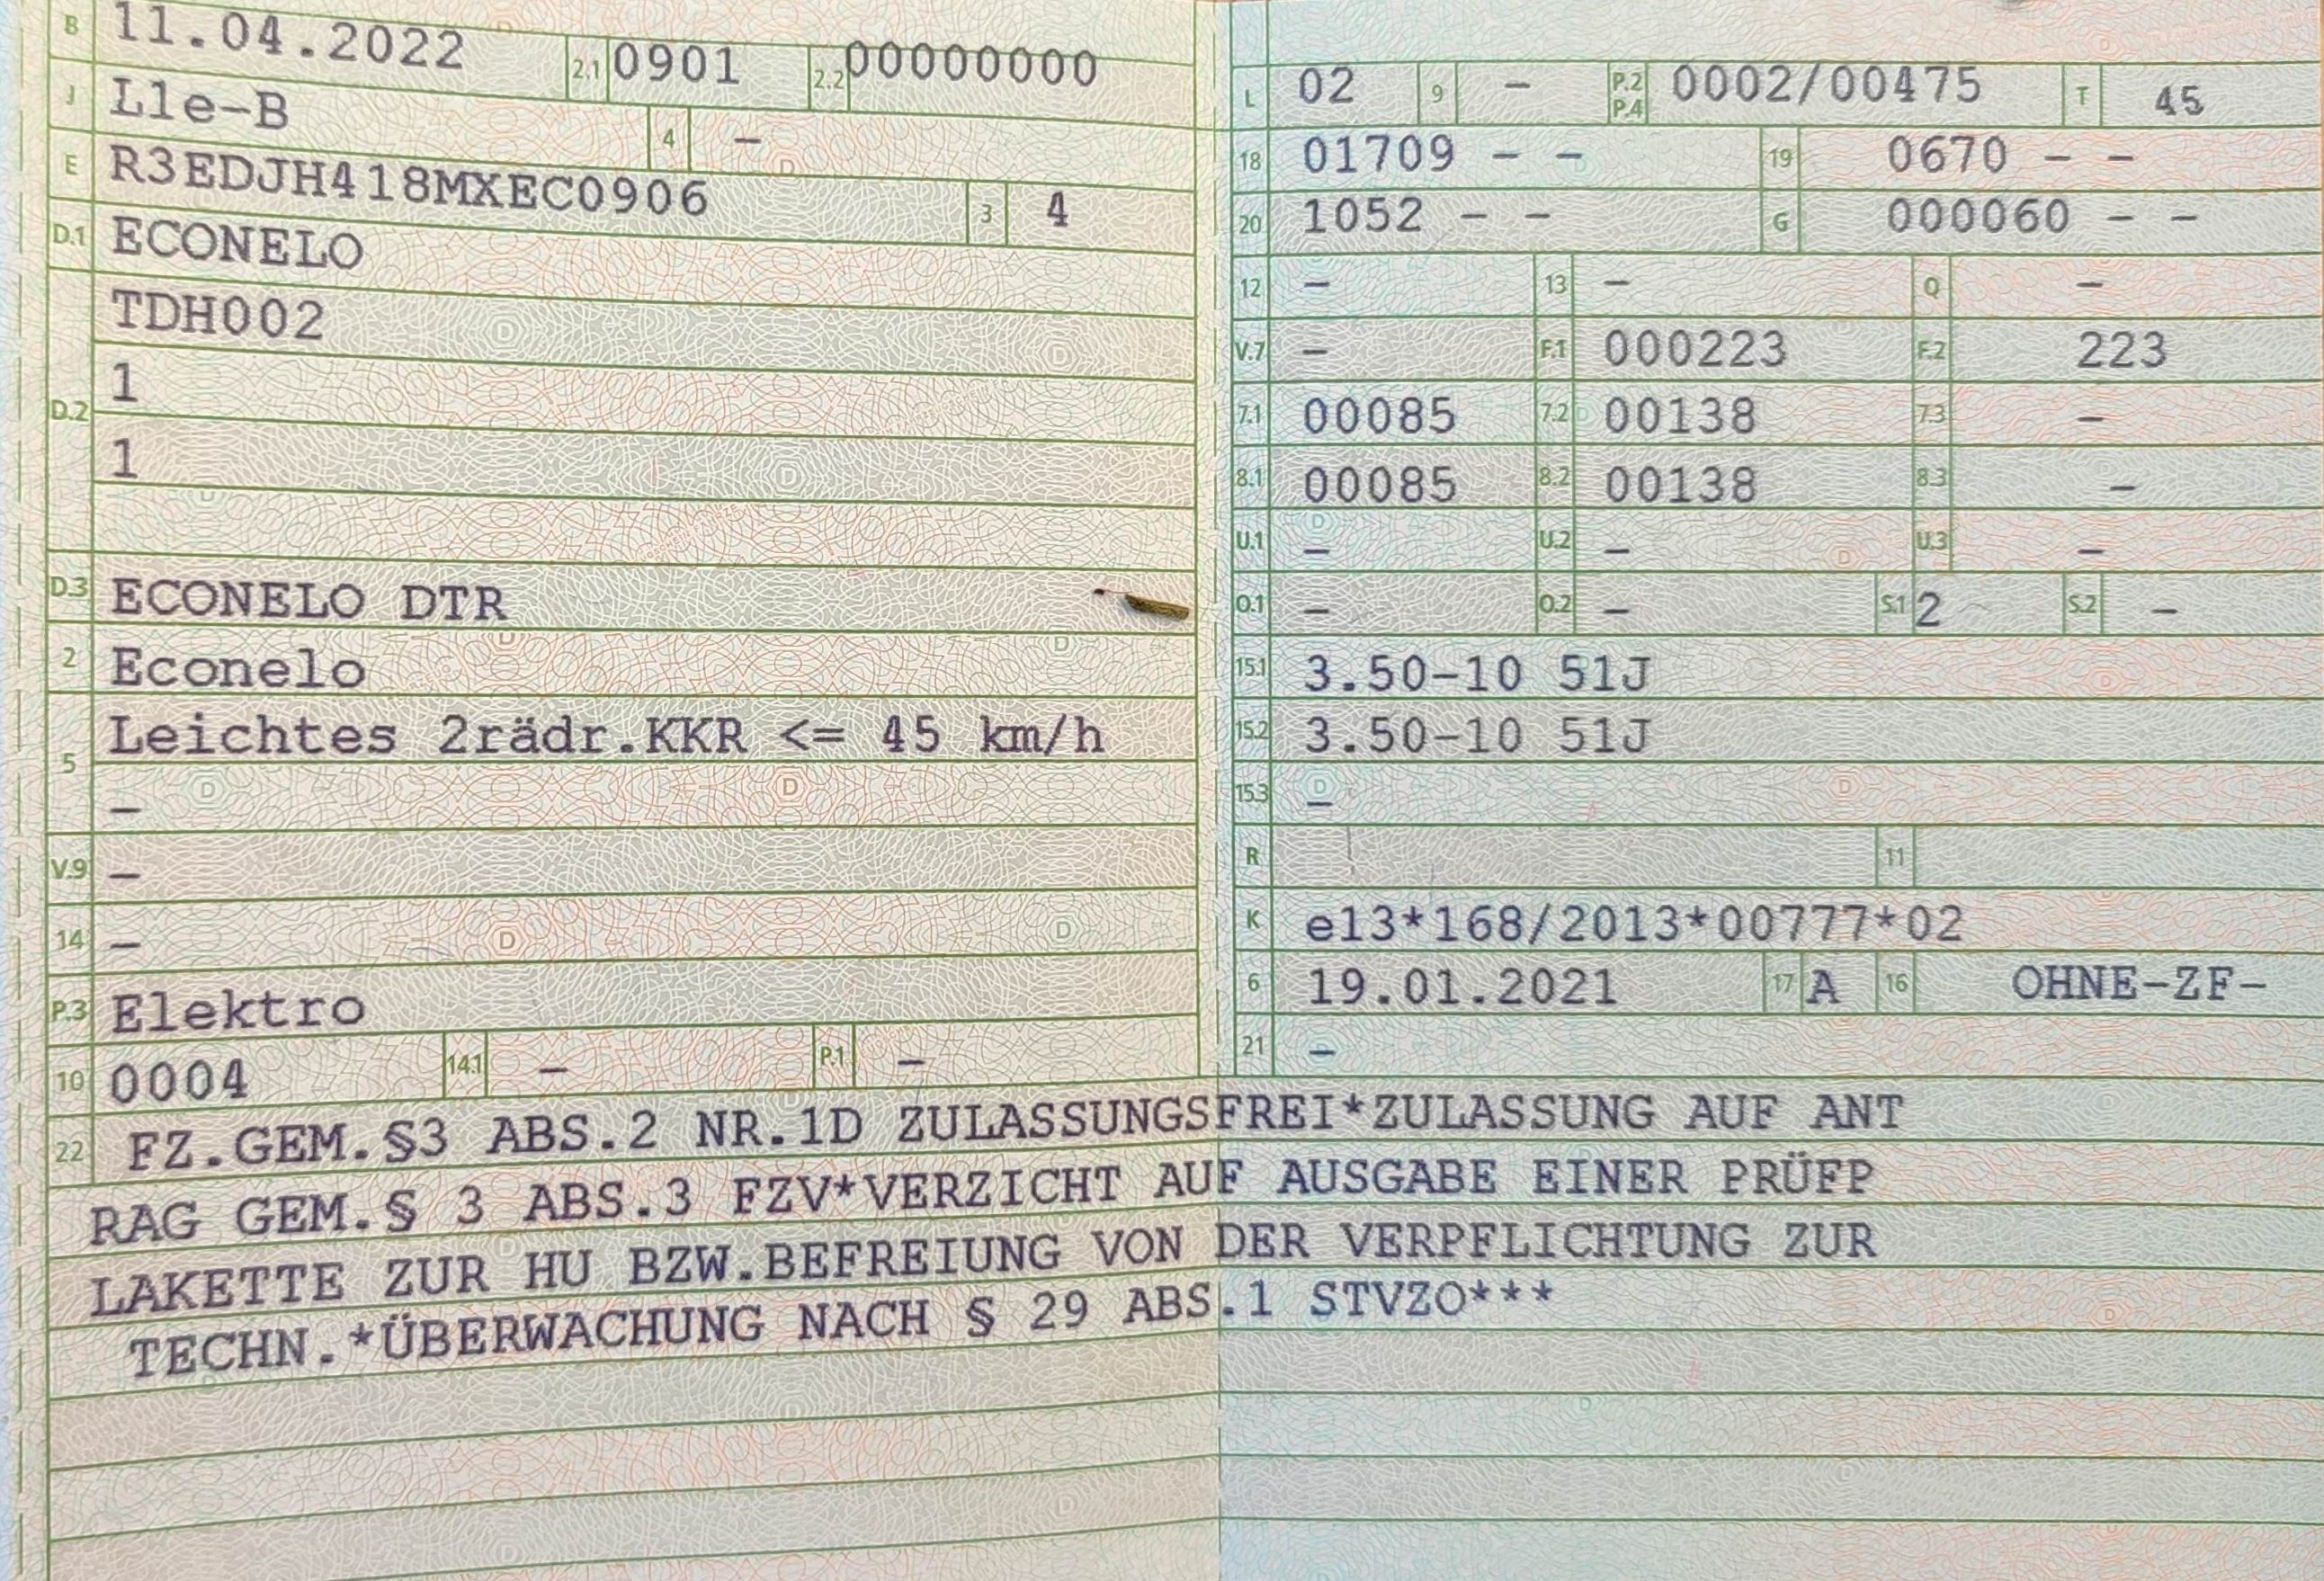 B 11.04.2022 2.1 0901 2.2 00000000
J L1e-B 4 –
E R3EDJH418MXEC0906 3 4
D.1 ECONELO
TDH002
D.2 1
1
D.3 ECONELO DTR
2 Econelo
5 Leichtes 2rädr.KKR <= 45 km/h
–
V.9 –
14 –
P.3 Elektro
10 0004 14.1 – P.1 –
L 02 9 – P.2 P.4 0002/00475 T 45
18 01709 – – 19 0670 – –
20 1052 – – G 000060 – –
12 – 13 – Q –
V.7 – F.1 000223 F.2 223
7.1 00085 7.2 00138 7.3 –
8.1 00085 8.2 00138 8.3 –
U.1 – U.2 – U.3 –
O.1 – O.2 – S.1 2 S.2 –
15.1 3.50-10 51J
15.2 3.50-10 51J
15.3 –
R 11
K e13*168/2013*00777*02
6 19.01.2021 17 A 16 OHNE-ZF-
21 –
22 FZ.GEM.§3 ABS.2 NR.1D ZULASSUNGSFREI*ZULASSUNG AUF ANT
RAG GEM.§ 3 ABS.3 FZV*VERZICHT AUF AUSGABE EINER PRÜFP
LAKETTE ZUR HU BZW.BEFREIUNG VON DER VERPFLICHTUNG ZUR
TECHN.*ÜBERWACHUNG NACH § 29 ABS.1 STVZO***